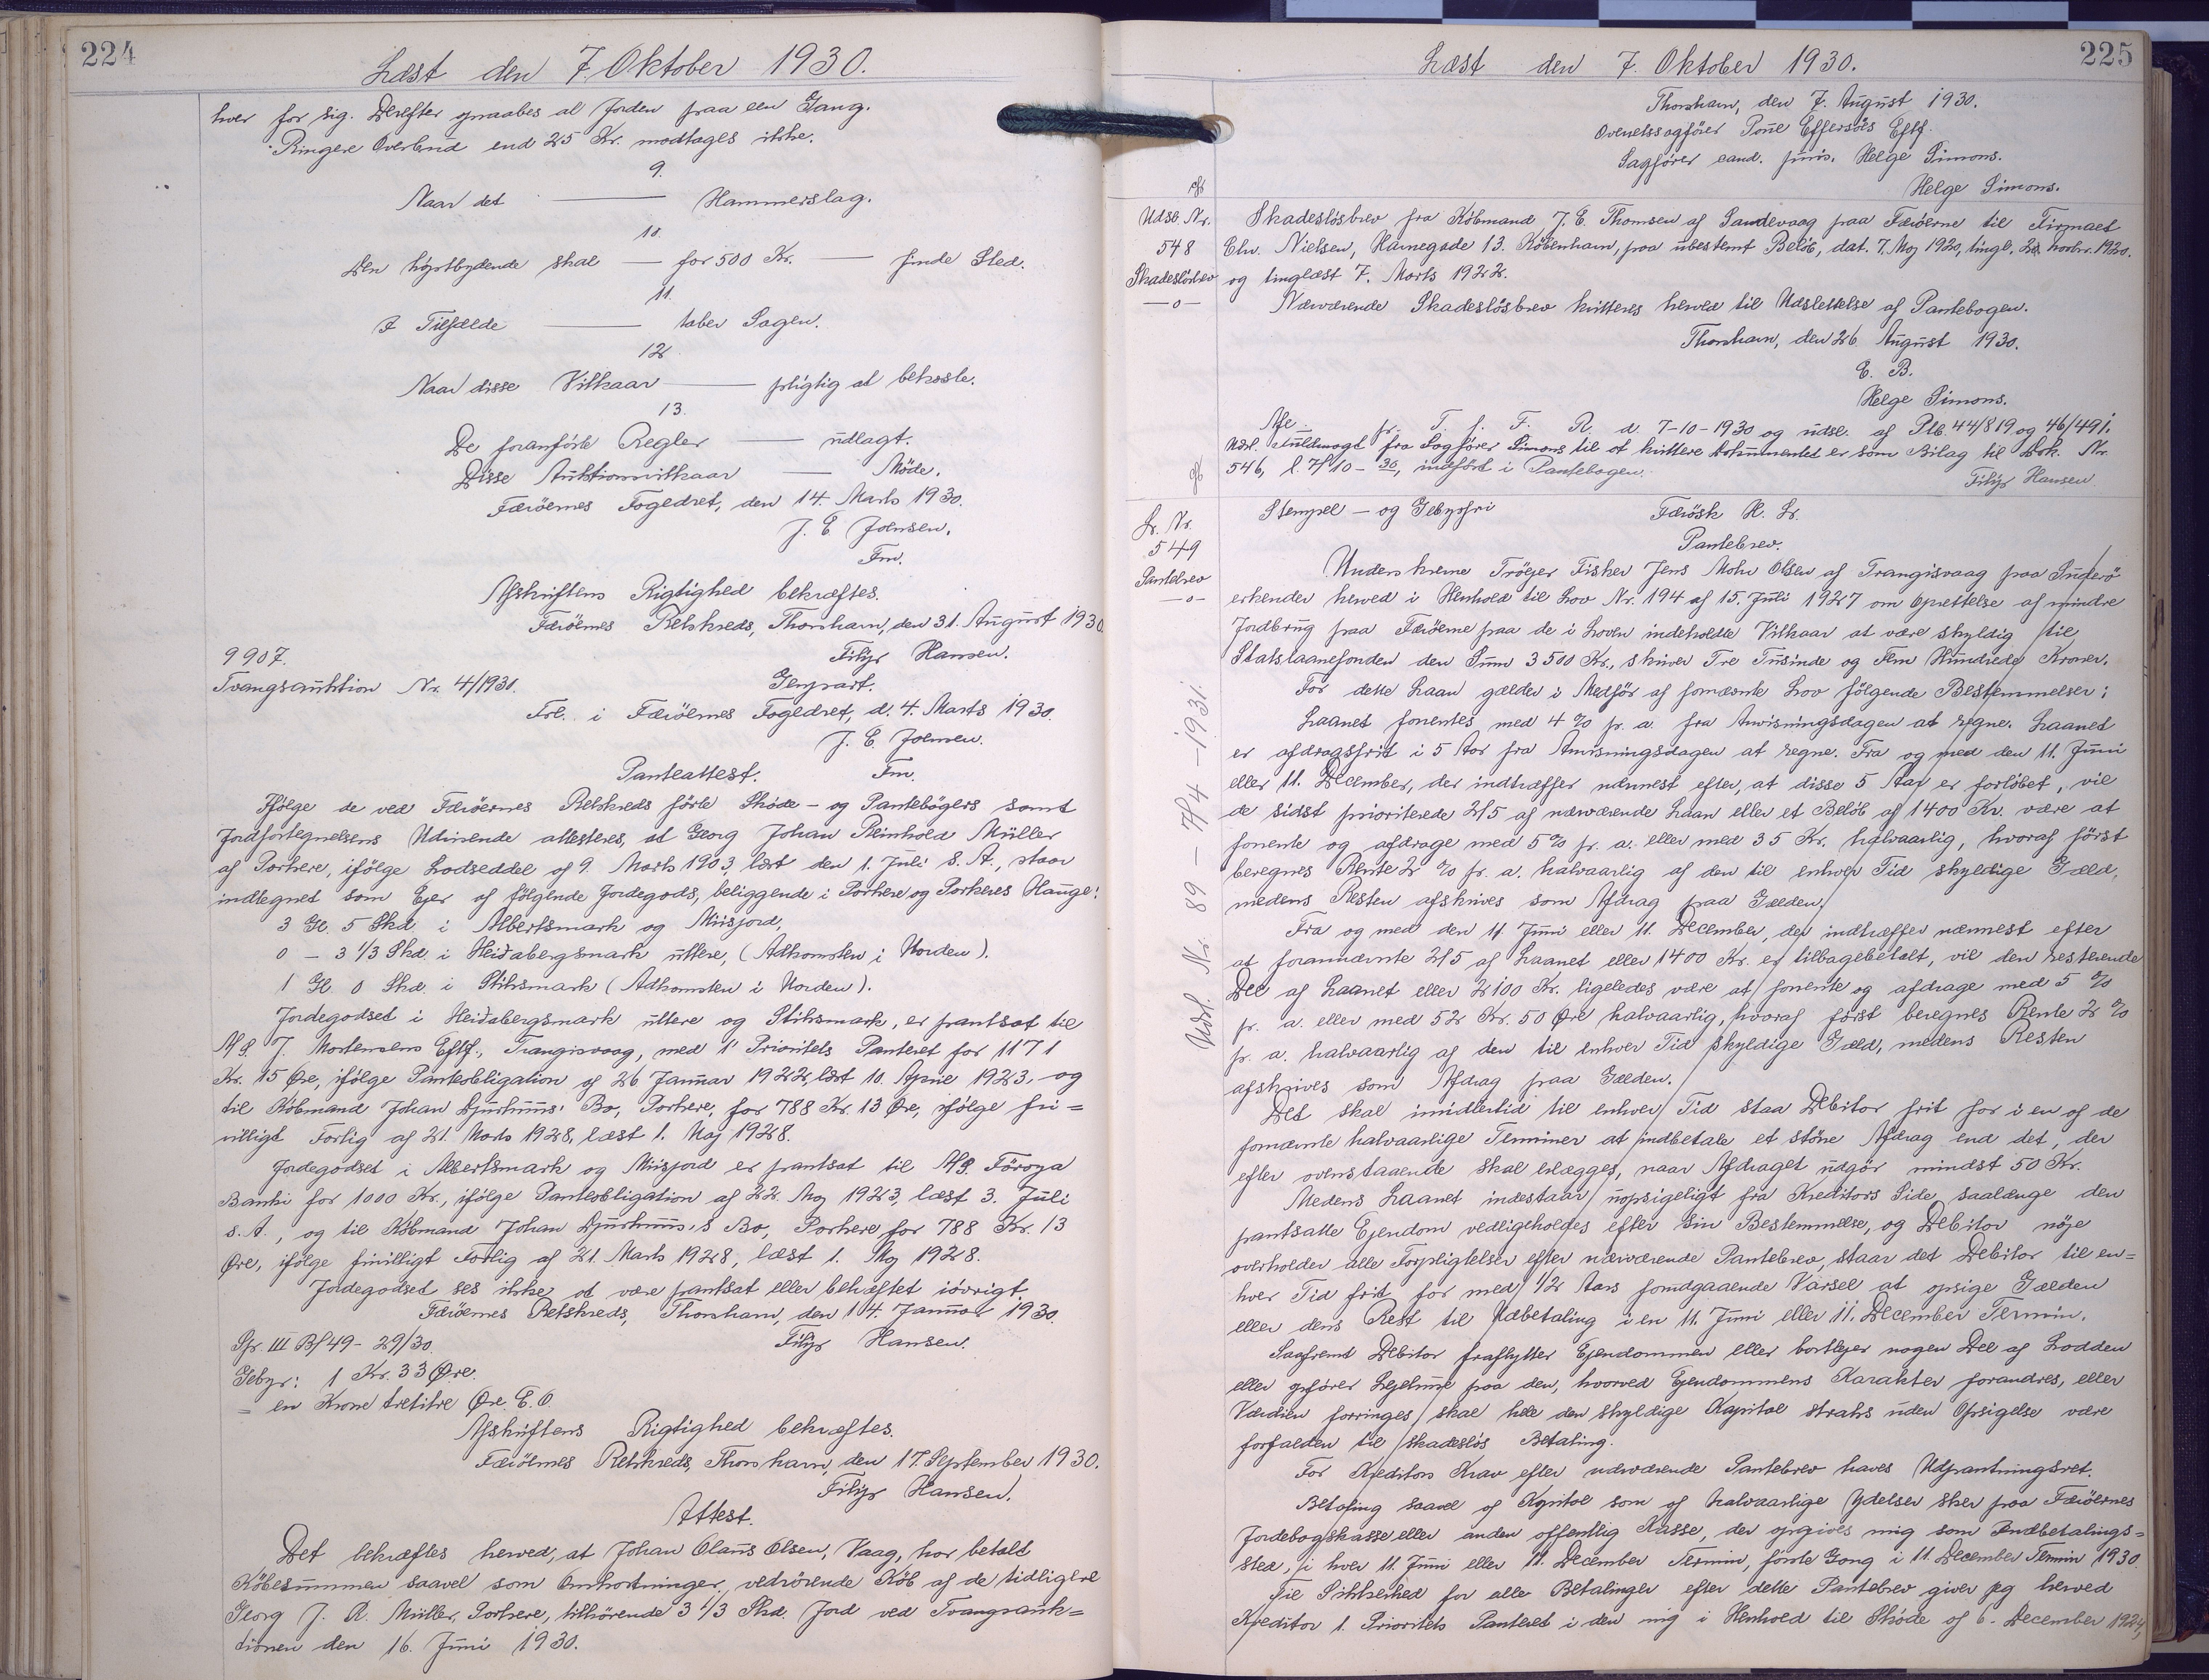 224
Læst den 7. Oktober 1930.
hver for sig. Derefter opraabes al Jorden paa een Gang.
Ringere Overbud end 25 Kr. modtages ikke.
9.
Naar det — Hammerslag.
10.
Den høystbydende skal — for 500 Kr. — finde Sted.
11.
I Tilfælde — taber Sagen.
12
Naar disse Vilkaar — pligtig at bekoste.
13.
De foranførte Regler — udlagt.
Disse Auktionsvilkaar — Møde.
Færöernes Fogedret, den 14. Marts 1930.
J. E. Joensen.
Fm.
Afskriftens Rigtighed bekræftes.
Færöernes Retskreds, Thorshavn, den 31. August 1930.
Filip Hansen.
9907.
Tvangsauktion Nr. 4/1931.
Genpart.
Frl. i Færöernes Fogedret, d. 4. Marts 1930.
J. E. Joensen.
Panteattest. Fm.
Ifölge de ved Færöernes Retskreds förte Sköde- og Pantebögers samt
Jordfortegnelsens Udvisende attesteres, at Georg Johan Reinhold Müller
af Porkere, ifölge Lodseddel af 9. Marts 1903, læst den 1. Juli s. A., staar
indtegnet som Ejer af fölgende Jordegods, beliggende i Porkere og Porkeres Hauge:
3 Gl. 5 Skd. i Albertsmark og Miisjord,
0 - 3 1/3 Skd. i Heiðabergsmark ültere, (Adkomsten i Orden).
1 Gl. 0 Skd. i Stiksmark (Adkomsten i Orden).
Jordegodset i Heiðabergsmark ültere og Stiksmark, er pantsat til
A/S. J. Mortensens Eftf., Trangisvaag, med 1' Prioritets Panteret for 1171
Kr. 15 Øre, ifölge Panteobligation af 26 Januar 1922, læst 10. April 1923, og
til Købmand Johan Djurhuus' Bo, Porkere, for 788 Kr. 13 Øre, ifölge fri=
villigt Forlig af 21. Marts 1928, læst 1. Maj 1928.
Jordegodset i Albertsmark og Miisjord er pantsat til A/S. Föroya
Banki for 1000 Kr., ifölge Panteobligation af 22. Maj 1923, læst 3. Juli
s. A., og til Købmand Johan Djurhuus,s Bo, Porkere, for 788 Kr. 13
Øre, ifölge frivilligt Forlig af 21. Marts 1928, læst 1. Maj 1928.
Jordegodset ses ikke at være pantsat eller behæftet iövrigt.
Færöernes Retskreds, Thorshavn, den 14. Januar 1930.
Filip Hansen.
Spr. III B/49 - 29/30.
Gebyr: 1 Kr. 33 Øre.
= en Krone tretitre Øre. E. O.
Afskriftens Rigtighed bekræftes.
Færöernes Retskreds, Thorshavn, den 17. September 1930.
Filip Hansen.
Attest.
Det bekræftes herved, at Johan Olaus Olsen, Vaag, har betalt
Købesummen saavel som Omkostninger, vedrörende Køb af de tidligere
Georg J. R. Müller, Porkere, tilhörende 3 1/3 Skd. Jord ved Tvangsauk=
tionen den 16. Juni 1930.
225
Læst den 7. Oktober 1930.
Thorshavn, den 7. August 1930.
Overretssagfører Poue Effersøes Eftf.
Sagfører cand. juris. Helge Simons.
Helge Simons.
Udsl. Nr.
548
Skadeslösbrev
—o—
Skadeslösbrev fra Købmand J. E. Thomsen af Sandevaag paa Færöerne til Firmaet
Chr. Nielsen, Havnegade 13. København, paa ubestemt Beløb, dat. 7. Maj 1920, tingl. 23 novbr. 1920.
og tinglæst 7. Marts 1922.
Nærværende Skadeslösbrev kvitteres herved til Udslettelse af Pantebogen.
Thorshavn, den 26 August 1930.
E. B.
Helge Simons.
Afl. pr. T. f. F. R. d. 7-10-1930 og udsl. af Plb. 44/819 og 46/491.
Udsl. Fuldmagt fra Sagfører Simons til at kvittere dokumentet er som Bilag til Dok. Nr.
546, l. 7/10-30, indfört i Pantebogen.
Filip Hansen
Lr. Nr.
549
Pantebrev
—o—
Stempel- og Gebyrfri
Færösk H. L.
Pantebrev.
Underskrevne Tröejer Fisker Jens Mohr Olsen af Trangisvaag paa Suderö
erkender herved i Henhold til Lov Nr. 194 af 15. Juli 1927 om Oprettelse af mindre
Jordbrug paa Færöerne paa de i Loven indeholdte Vilkaar at være skyldig til
Statslaanefonden den Sum 3500 Kr., skriver Tre Tusinde og Fem Hundrede Kroner.
For dette Laan gælder i Medför af fornævnte Lov fölgende Bestemmelser:
Laanet forrentes med 4 % p. a. fra Anvisningsdagen at regne. Laanet
er afdragsfrit i 5 Aar fra Anvisningsdagen at regne. Fra og med den 11. Juni
eller 11. December, der indtræffer nærmest efter, at disse 5 Aar er forløbet, vil
de sidst prioriterede 2/5 af nærværende Laan eller et Beløb af 1400 Kr. være at
forrente og afdrage med 5 % p. a. eller med 35 Kr. halvaarlig, hvoraf först
beregnes Rente 2 % p. a. halvaarlig af den til enhver Tid skyldige Gæld,
medens Resten afskrives som Afdrag paa Gælden.
Fra og med den 11 Juni eller 11. December, der indtræffer nærmest efter
at forannævnte 2/5 af Laanet eller 1400 Kr. er tilbagebetalt, vil den resterende
Del af Laanet eller 2100 Kr. ligeledes være at forrente og afdrage med 5 %
p. a. eller med 52 Kr. 50 Øre halvaarlig, hvoraf först beregnes Rente 2 %
p. a. halvaarlig af den til enhver Tid skyldige Gæld, medens Resten
afskrives som Afdrag paa Gælden.
Det skal imidlertid til enhver Tid staa Debitor frit for i en af de
fornævnte halvaarlige Terminer at indbetale et større Afdrag end det, der
efter ovenstaaende skal erlægges, naar Afdraget udgör mindst 50 Kr.
Medens Laanet indestaar uopsigeligt fra Kreditors Side, saalænge den
pantsatte Ejendom vedligeholdes efter sin Bestemmelse, og Debitor nöje
overholder alle Forpligtelser efter nærværende Pantebrev, staar det Debitor til en=
hver Tid frit for med 1/2 Aars forudgaaende Varsel at opsige Gælden
eller dens Rest til Udbetaling i en 11. Juni eller 11. December Termin.
Saafremt Debitor fraflytter Ejendommen eller bortlejer nogen Del af Lodden
eller opförer Lejehuse paa den, hvorved Ejendommens Karakter forandres, eller
Værdien forringes skal hele den skyldige Kapital straks uden Opsigelse være
forfalden til skadeslös Betaling.
For Kreditors Krav efter nærværende Pantebrev haves Udpantningsret.
Betaling saavel af Kapital som af halvaarlige Ydelser sker paa Færöernes
Jordebogskasse eller anden offentlig Kasse, der opgives mig som Indbetalings=
sted, i hver 11. Juni eller 11. December Termin, förste Gang i 11. December Termin 1930.
Til Sikkerhed for alle Betalinger efter dette Pantebrev giver jeg herved
Kreditor 1. Prioritets Panteret i den mig i Henhold til Sköde af 6. December 1924,
Udsl. Nr. 89 - 7/4 - 1931.